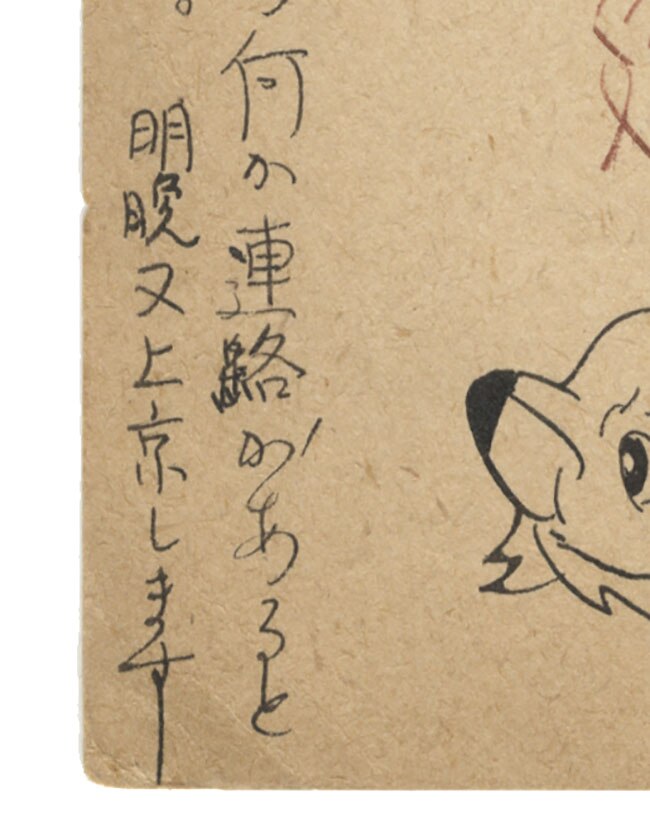 何か連路があると
。
明晩又上京します